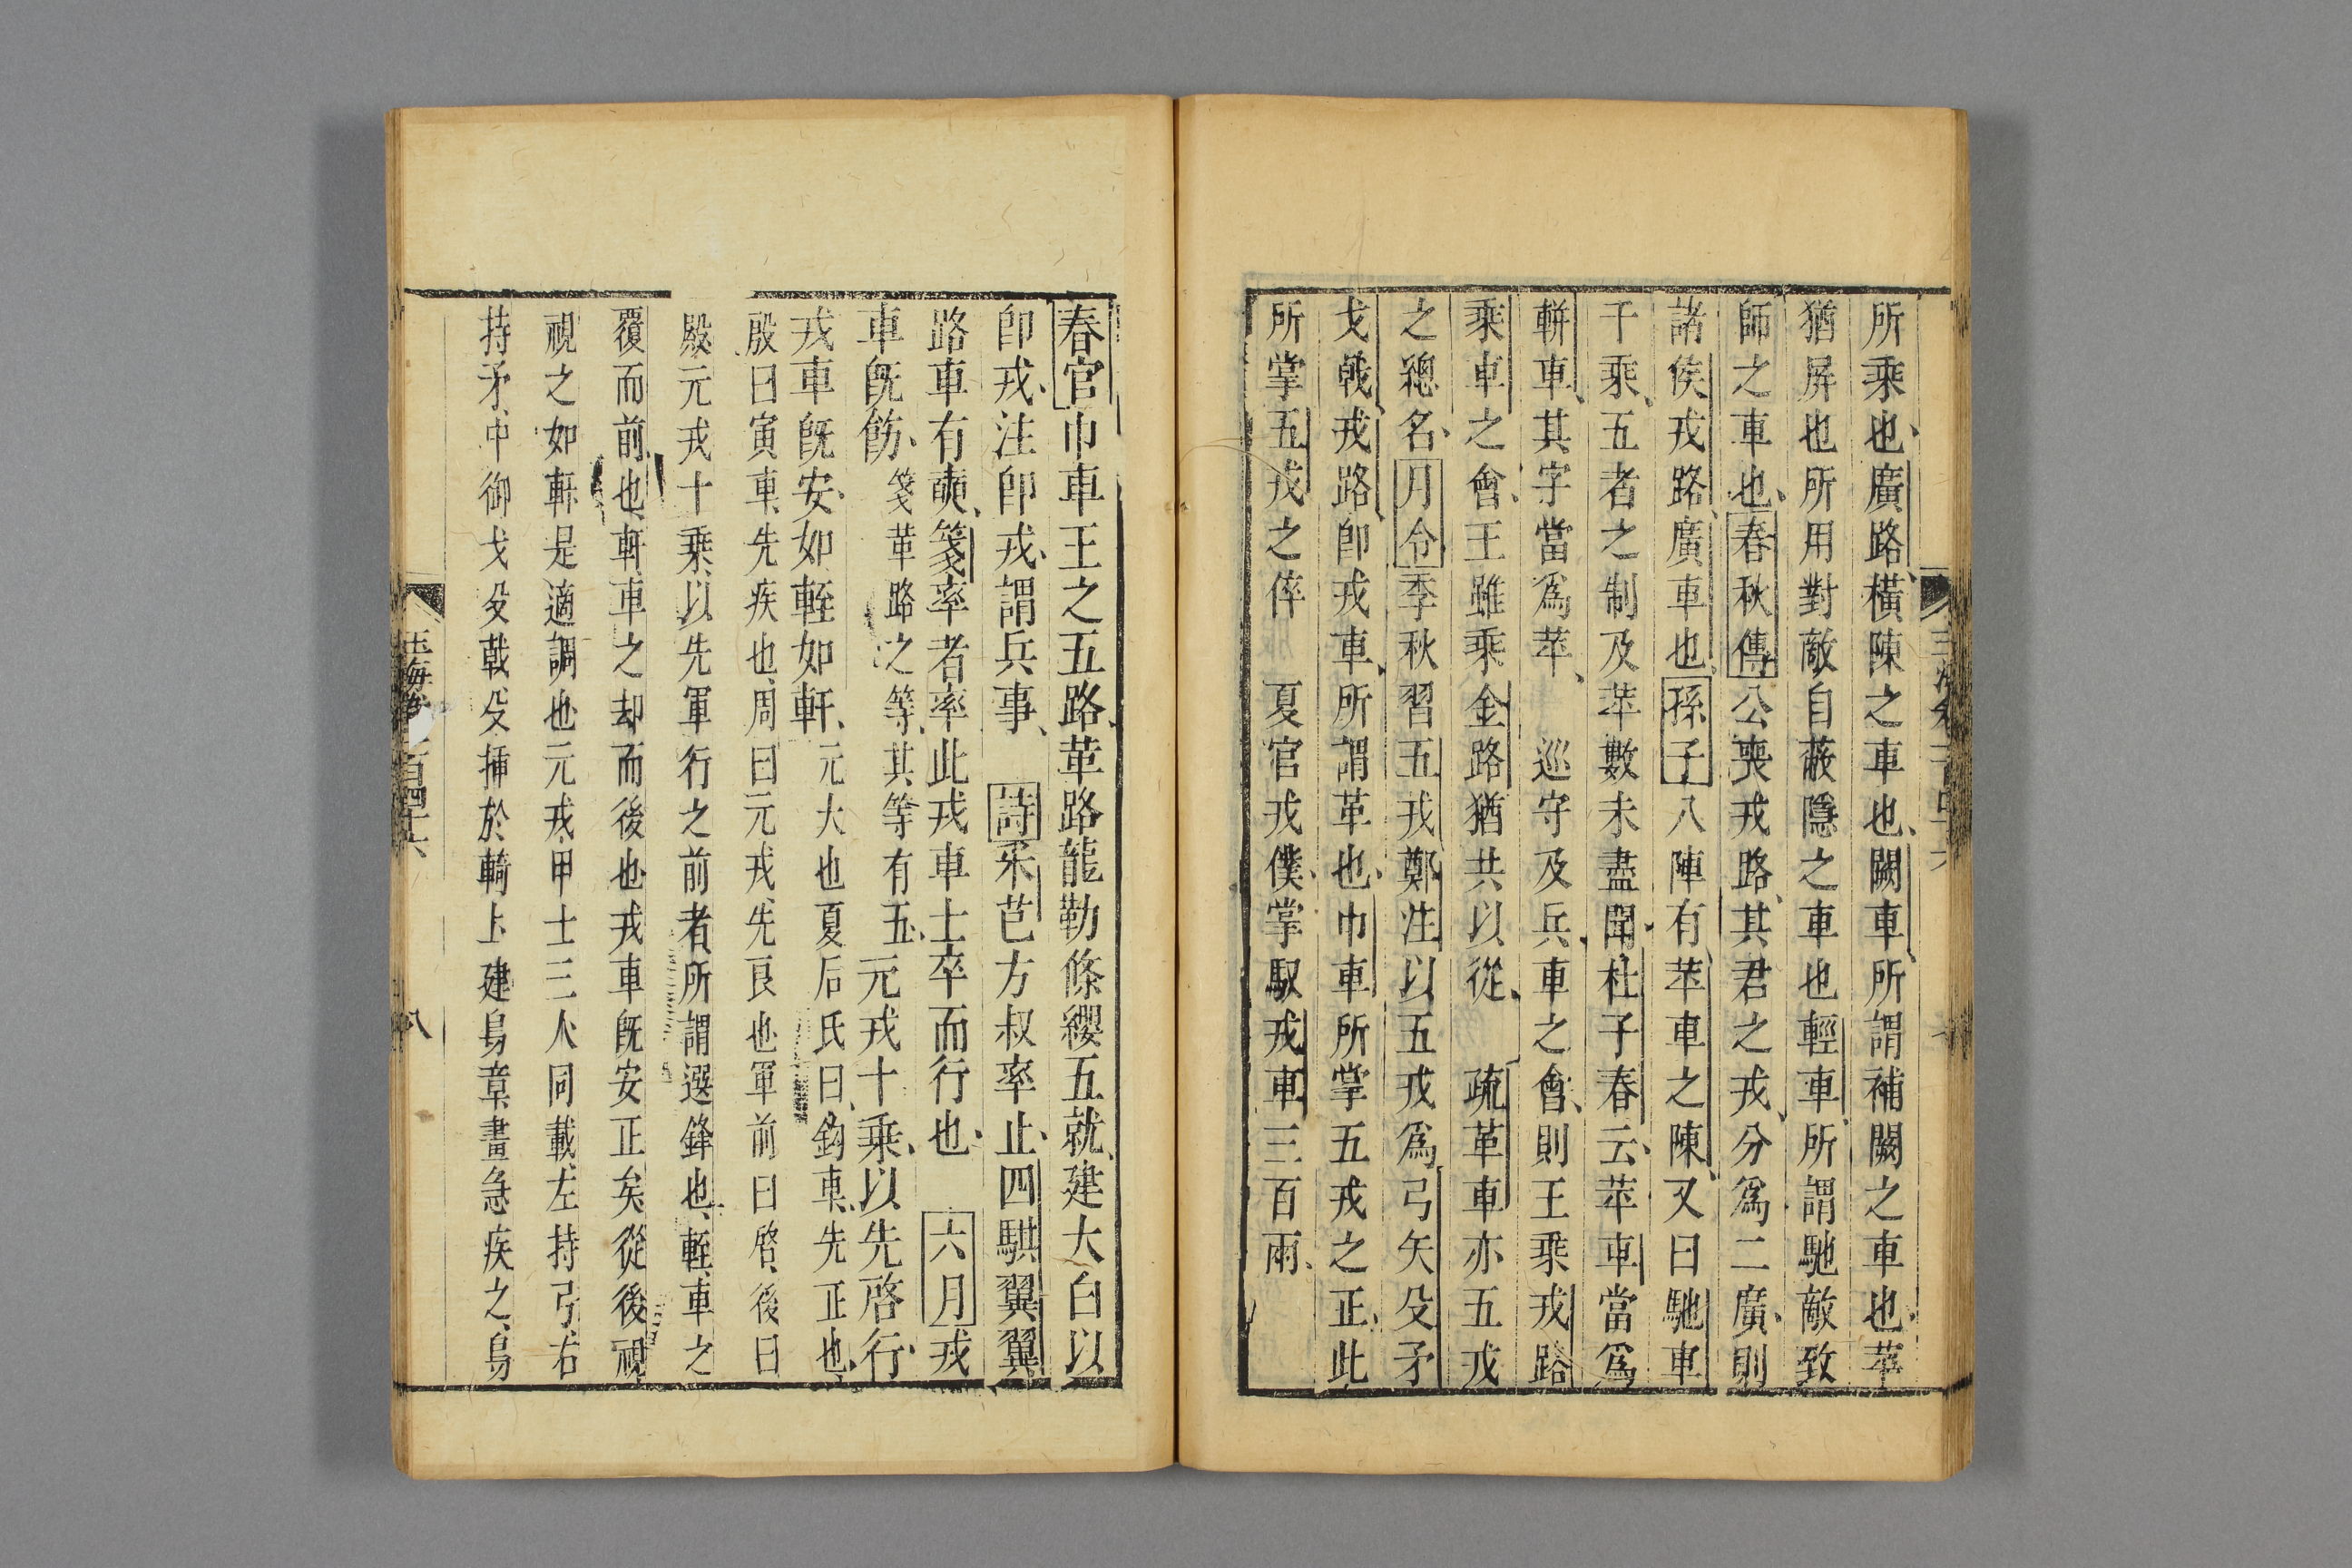 所乘也廣路橫陳之車也闕車所謂補闕之車也苹
猶屏也所用對敵自蔽隱之車也輕車所謂馳敵致
師之車也春秋傳公喪戎路其君之戎分爲二廣則
諸侯戎路廣車也孫子八陣有苹車之陳又曰馳車
千乘五者之制及苹數未盡聞杜子春云苹車當爲
軿車其字當爲苹　巡守及兵車之會則王乘戎路
乘車之會王雖乘金路猶共以從　疏革車亦五戎
之總名月令季秋習五戎鄭注以五戎爲弓矢殳矛
戈戟戎路卽戎車所謂革也巾車所掌五戎之正此
所掌五戎之倅　夏官戎僕掌馭戎車三百兩
春官巾車王之五路革路龍勒條纓五就建大白以
卽戎注卽戎謂兵事　詩采芑方叔率止四騏翼翼
路車有奭箋率者率此戎車士卒而行也　六月戎
車旣飭箋革路之等其等有五元戎十乘以先啓行
戎車旣安如輊如軒元大也夏后氏曰鉤車先正也
殷曰寅車先疾也周曰元戎先良也軍前曰啓後曰
殿元戎十乘以先軍行之前者所謂選鋒也輊車之
覆而前也軒車之却而後也戎車旣安正矣從後視
視之如軒是適調也元戎甲士三人同載左持弓右
持矛中御戈殳戟殳揷於輢上建鳥章畫急疾之鳥
玉海卷一百四十六
八